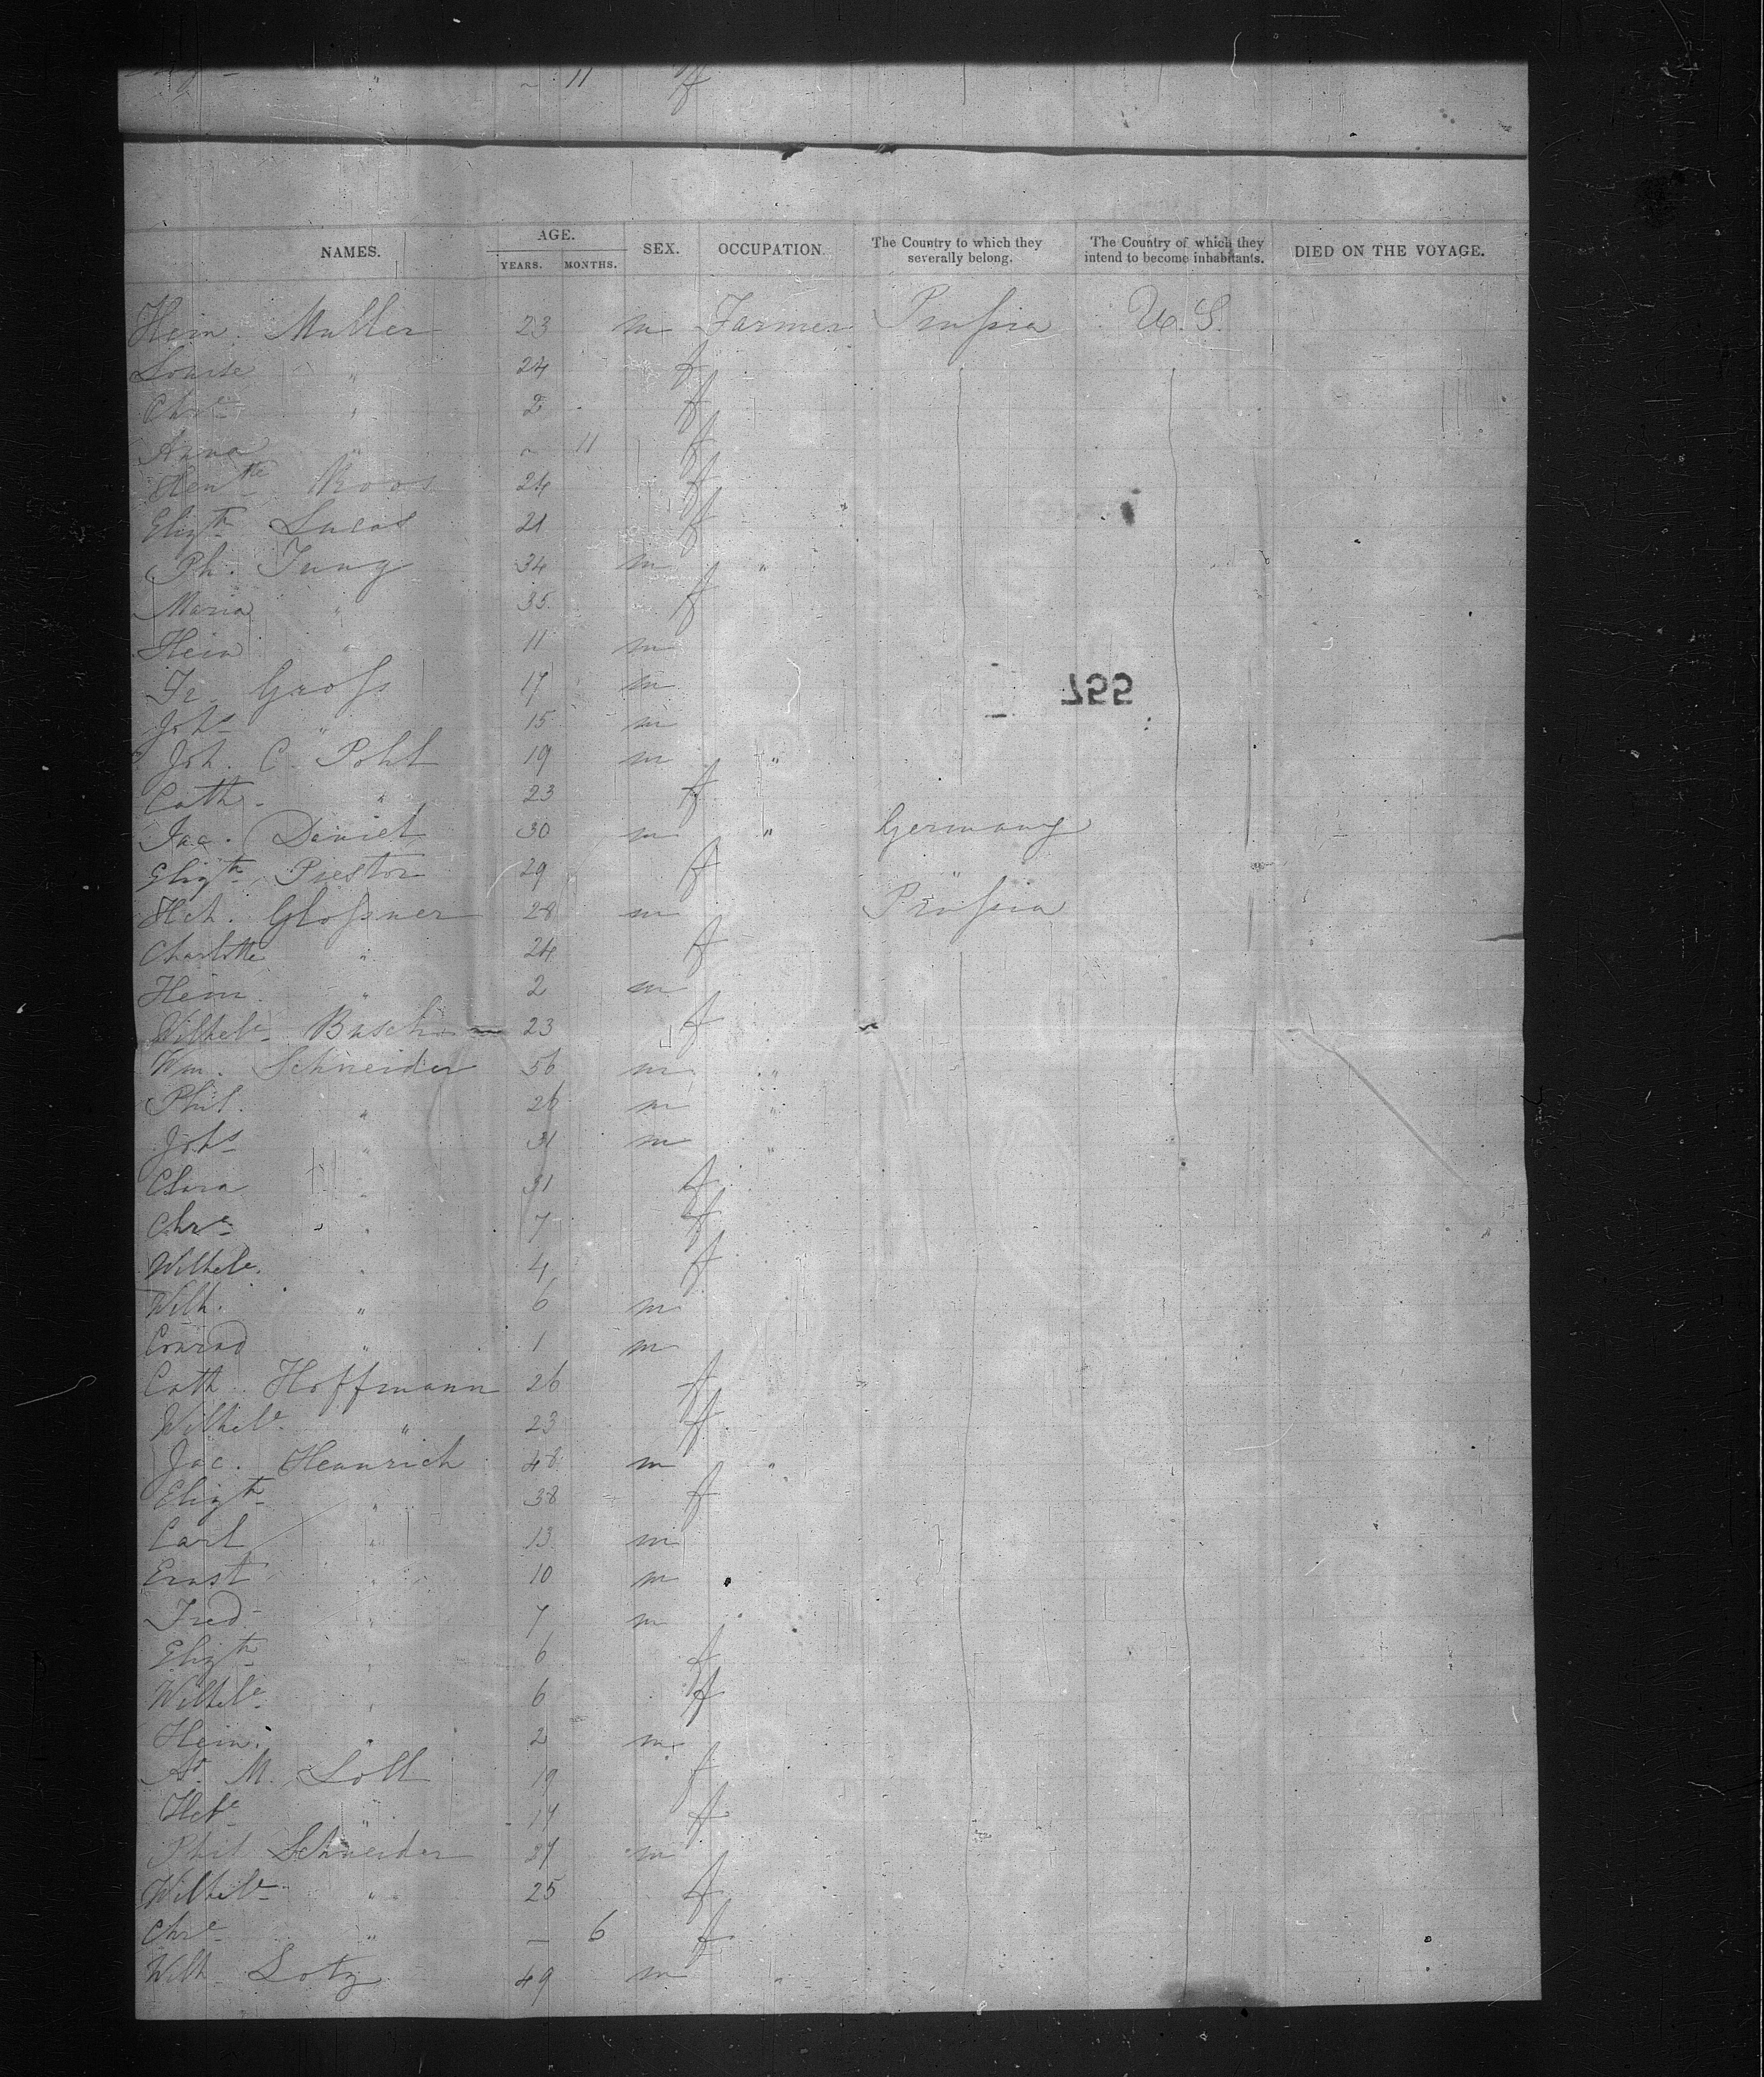 " ~ 11 f
NAMES. AGE. YEARS. MONTHS. SEX. OCCUPATION. The Country to which they severally belong. The Country of which they intend to become inhabitants. DIED ON THE VOYAGE.
Hein. Muller 23 m Farmer Prussia U.S.
Louise " 24 f
Chre " 2 f
Anna " ~ 11 f
Hentte Roos 24 f
Elizth Lucas 21 f
Ph. Jung 34 m "
Maria " 35 f
Hein " 11 m
Fr. Gross 17 m
Johs " 15 m
Joh. C. Pohl 19 m "
Cath. " 23 f
Jac. Daniel 30 m " Germany
Elizth 29 f
Hch. Glossner 28 m Prussia
Charlotte " 24 f
Hein. " 2 m
Wilhele Busch 23 f
Wm. Schneider 56 m "
Phil. " 26 m "
Johs " 31 m "
Clara " 31 f
Chre " 7 f
Wilhele. " 4 f
Wilh. " 6 m
Conrad " 1 m
Cath. Hoffmann 26 f
Wilhele " 23 f
Jac. Heinrich 48 m "
Elizth " 38 f
Carl " 13 m
Ernst " 10 m
Fred " 7 m
Elizth " 6 f
Wilhele " 6 f
Hein. " 2 m
M. Loll 19 f
" 17 f
Phil Schneider 27 m
Wilhele " 25 f
Chre " — 6 f
Wilh Lotz 49 m "
755